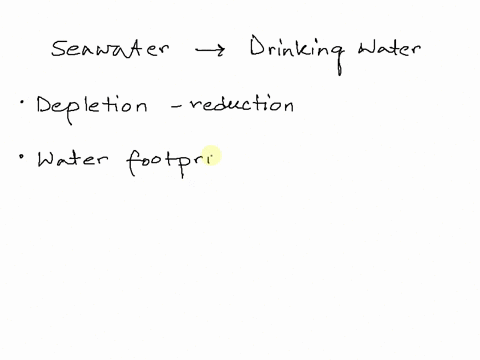 Seawater → Drinking Water
• Depletion - reduction
• Water footpri